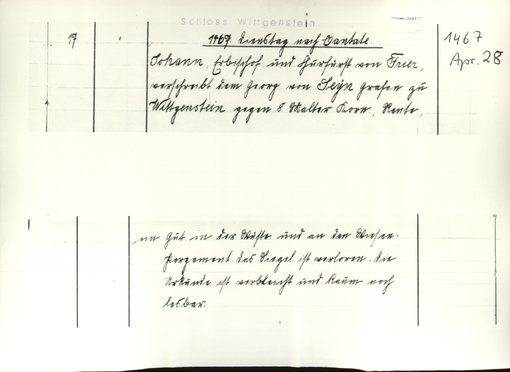 Schloss Wittgenstein
17
1467 Dienstag nach Cantate.
1467
Apr. 28
Johann, Erbischof und Churfürst von Trier,
verschreibt dem Georg von Seyn Grafen zu
Wittgenstein gegen 8 Malter Korn, Rente,
ein Gut in der Wüste und an den Wiesen.
Pergament das Siegel ist verloren. die
Urkunde ist verbleicht und kaum noch
lesbar.